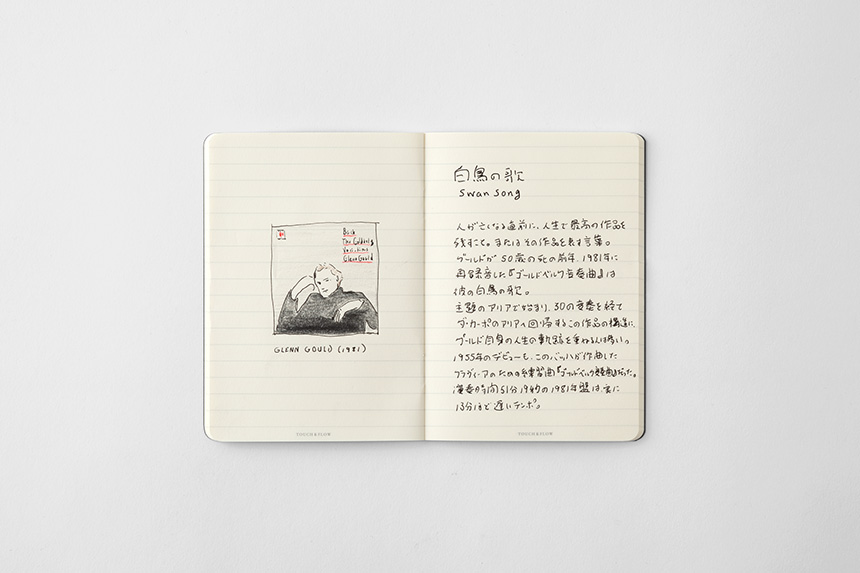 Bach
The Goldberg
Variations
Glenn Gould
GLENN GOULD (1981)
TOUCH & FLOW
白鳥の歌
swan song
人が亡くなる直前に、人生で最高の作品を
残すこと。またはその作品を表す言葉。
グールドが50歳の死の前年、1981年に
再録音した『ゴールドベルク変奏曲』は
彼の白鳥の歌。
主題のアリアで始まり、30の変奏を経て
ダ・カーポのアリアへ回帰するこの作品の構造に、
グールド自身の人生の軌跡を重ねる人は多い。
1955年のデビューも、このバッハが作曲した
クラヴィーアのための練習曲『ゴールドベルク変奏曲』だった。
演奏時間51分19秒の1981年盤は、実に
13分ほど遅いテンポ。
TOUCH & FLOW